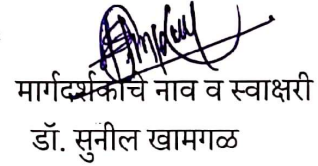 मार्गदर्शकाचे नाव व स्वाक्षरी
डॉ. सुनील खामगळ